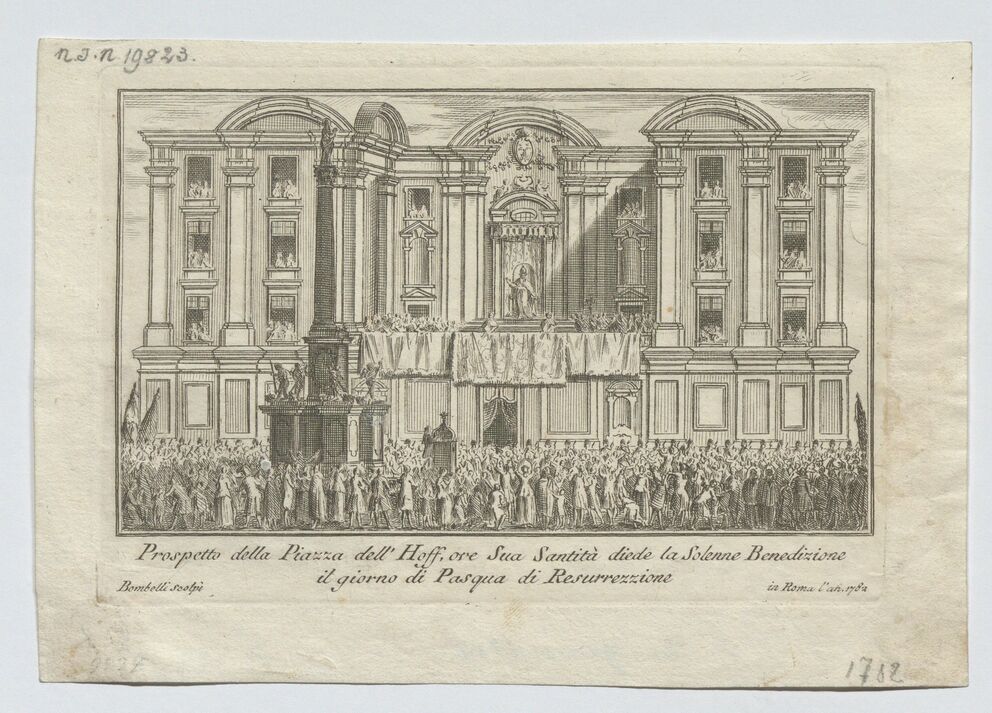 n.I.n 19823.
Prospetto della Piazza dell' Hoff, ove Sua Santità diede la Solenne Benedizione
il giorno di Pasqua di Resurrezzione
Bombelli scolpì
in Roma l'an. 1782
1782